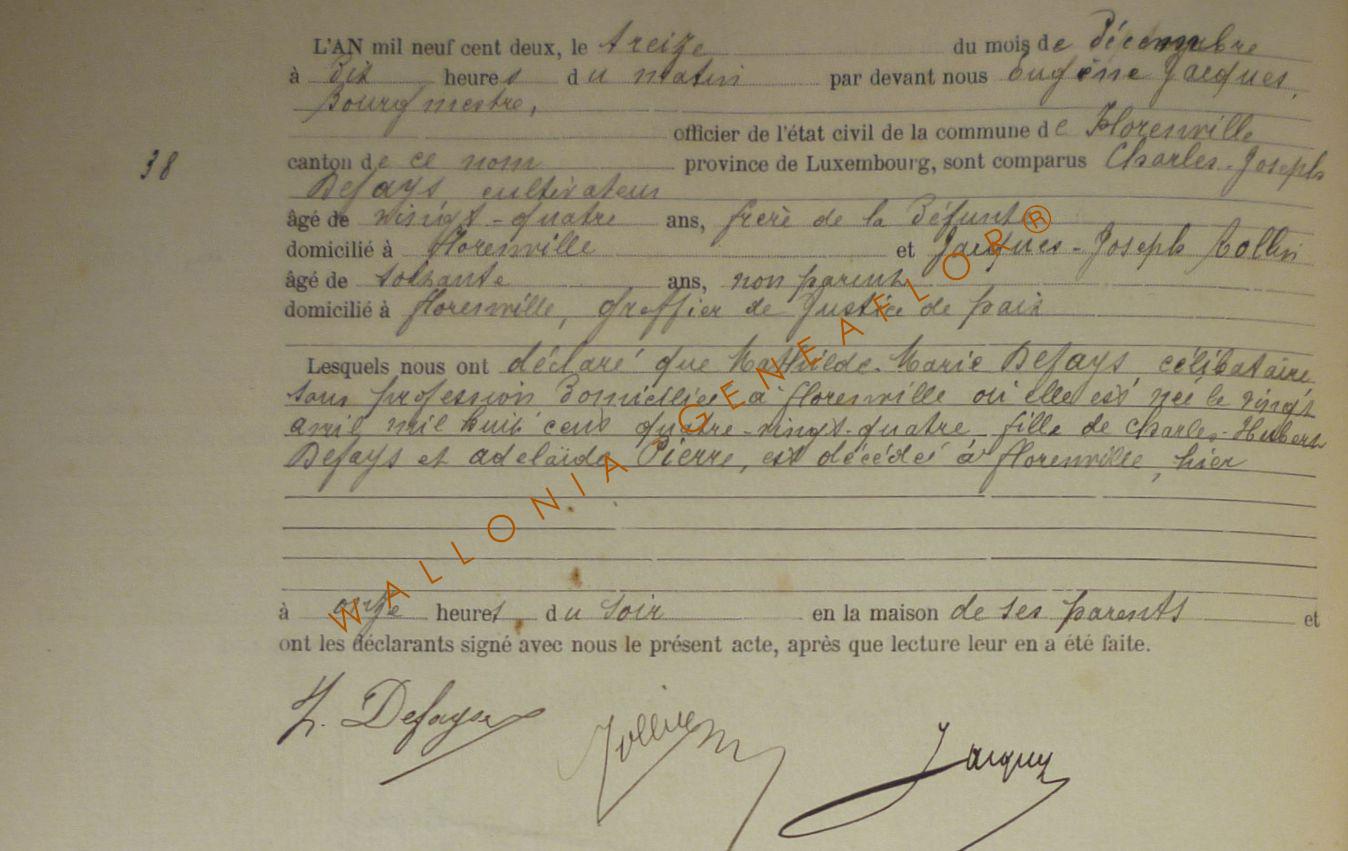 L'AN mil neuf cent deux, le treize du mois de Décembre
à Dix heures du matin par devant nous Eugène Jacques,
Bourgmestre,
officier de l'état civil de la commune de Florenville
38
canton de ce nom province de Luxembourg, sont comparus Charles-Joseph
Defays cultivateur
âgé de vingt-quatre ans, frère de la Défunte
domicilié à Florenville et Jacques-Joseph Collin
âgé de soixante ans, non parent
domicilié à Florenville, Greffier de Justice de paix
Lesquels nous ont déclaré que Mathilde-Marie Defays célibataire
sans profession Domiciliée à Florenville où elle est née le vingt
avril mil huit cent quatre-vingt-quatre fille de Charles-Hubert
Defays et adelaïde Pierre, est décédée à Florenville, hier
à onze heures du soir en la maison de ses parents et
ont les déclarants signé avec nous le présent acte, après que lecture leur en a été faite.
Defays Jacques
WALLONIA GENEAFLOR®